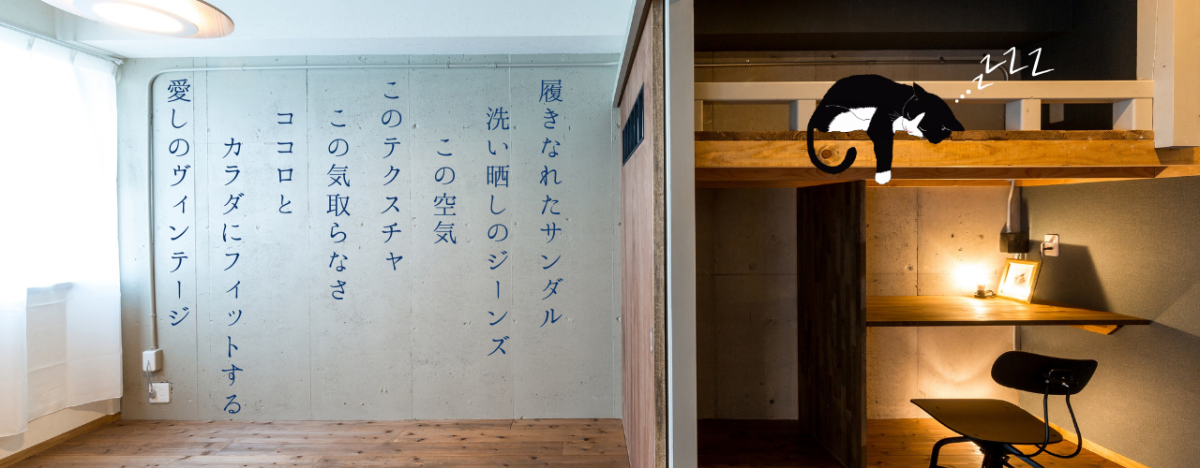 履きなれたサンダル
洗い晒しのジーンズ
この空気
このテクスチャ
この気取らなさ
ココロと
カラダにフィットする
愛しのヴィンテージ
zzZZZ